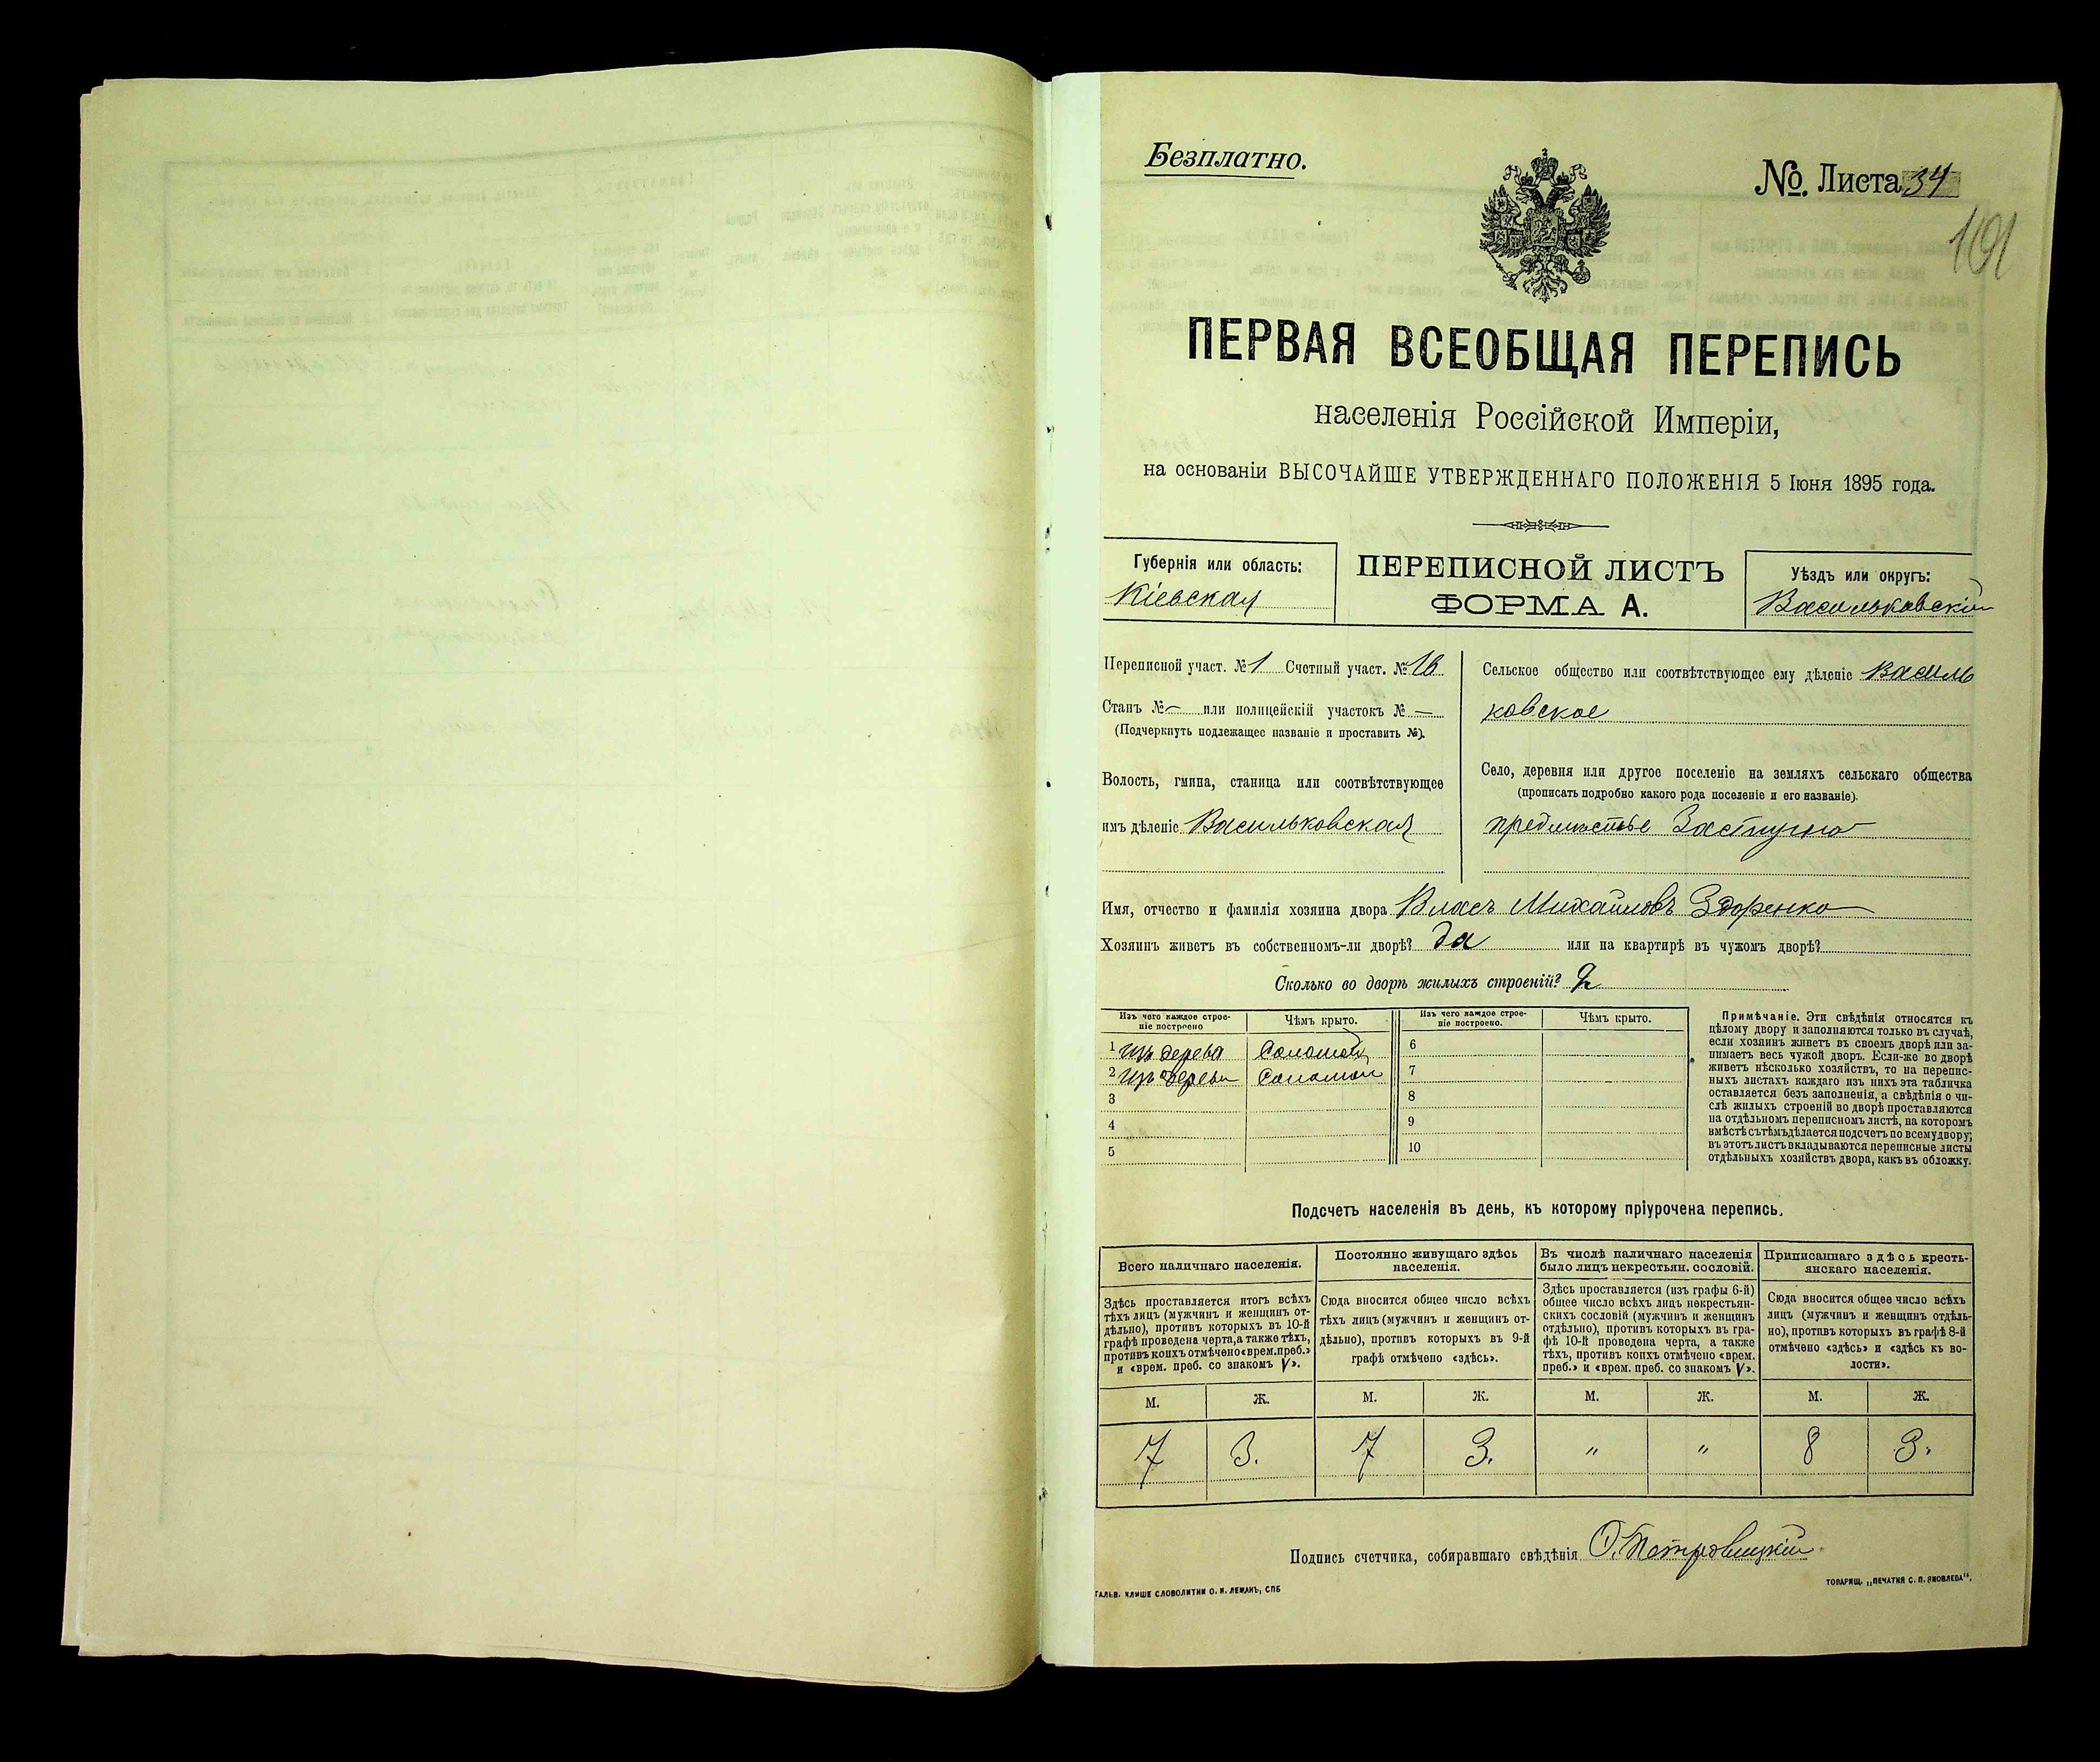 Безплатно.
№. Листа 34
191
ПЕРВАЯ ВСЕОБЩАЯ ПЕРЕПИСЬ
населенія Россійской Имперіи,
на основаніи ВЫСОЧАЙШЕ УТВЕРЖДЕННАГО ПОЛОЖЕНІЯ 5 Іюня 1895 года.
Губернія или область:
Кіевская
ПЕРЕПИСНОЙ ЛИСТЪ
ФОРМА А.
Уѣздъ или округъ:
Васильковскій
Переписной участ. № 1 Счетный участ. № 16
Станъ № — или полицейскій участокъ № —
(Подчеркнуть подлежащее названіе и проставить №).
Волость, гмина, станица или соотвѣтствующее
имъ дѣленіе Васильковская
Сельское общество или соотвѣтствующее ему дѣленіе Василь
ковское
Село, деревня или другое поселеніе на земляхъ сельскаго общества
(прописать подробно какого рода поселеніе и его названіе).
предмѣстье Застугно
Имя, отчество и фамилія хозяина двора Власъ Михайловъ Здоренко
Хозяинъ живетъ въ собственномъ-ли дворѣ? Да или на квартирѣ въ чужомъ дворѣ?
Сколько во дворѣ жилыхъ строеній? 2
Изъ чего каждое строе-
ніе построено
Чѣмъ крыто.
Изъ чего каждое строе-
ніе построено.
Чѣмъ крыто.
1 Изъ дерева Соломой 6
2 Изъ дерева Соломой 7
3 8
4 9
5 10
Примѣчаніе. Эти свѣдѣнія относятся къ
цѣлому двору и заполняются только въ случаѣ,
если хозяинъ живетъ въ своемъ дворѣ или за-
нимаетъ весь чужой дворъ. Если-же во дворѣ
живетъ нѣсколько хозяйствъ, то на перепис-
ныхъ листахъ каждаго изъ нихъ эта табличка
оставляется безъ заполненія, а свѣдѣнія о чи-
слѣ жилыхъ строеній во дворѣ проставляются
на отдѣльномъ переписномъ листѣ, на которомъ
вмѣстѣ съ тѣмъ дѣлается подсчетъ по всему двору;
въ этотъ листъ вкладываются переписные листы
отдѣльныхъ хозяйствъ двора, какъ въ обложку.
Подсчетъ населенія въ день, къ которому пріурочена перепись.
Всего наличнаго населенія.
Здѣсь проставляется итогъ всѣхъ
тѣхъ лицъ (мужчинъ и женщинъ от-
дѣльно), противъ которыхъ въ 10-й
графѣ проведена черта, а также тѣхъ,
противъ коихъ отмѣчено «врем. преб.»
и «врем. преб. со знакомъ V».
Постоянно живущаго здѣсь
населенія.
Сюда вносится общее число всѣхъ
тѣхъ лицъ (мужчинъ и женщинъ от-
дѣльно), противъ которыхъ въ 9-й
графѣ отмѣчено «здѣсь».
Въ числѣ наличнаго населенія
было лицъ некрестьян. сословій.
Здѣсь проставляется (изъ графы 6-й)
общее число всѣхъ лицъ некрестьян-
скихъ сословій (мужчинъ и женщинъ
отдѣльно), противъ которыхъ въ гра-
фѣ 10-й проведена черта, а также
тѣхъ, противъ коихъ отмѣчено «врем.
преб.» и «врем. преб. со знакомъ V».
Приписаннаго здѣсь кресть-
янскаго населенія.
Сюда вносится общее число всѣхъ
лицъ (мужчинъ и женщинъ отдѣль-
но), противъ которыхъ въ графѣ 8-й
отмѣчено «здѣсь» и «здѣсь къ во-
лости».
М. Ж. М. Ж. М. Ж. М. Ж.
7 3. 7 3. " " 8 3.
Подпись счетчика, собиравшаго свѣдѣнія О. Петровицкій
ГАЛЬВ. КЛИШЕ СЛОВОЛИТНИ О. И. ЛЕМАНЪ, СПБ
ТОВАРИЩ. „ПЕЧАТНЯ С. П. ЯКОВЛЕВА“.